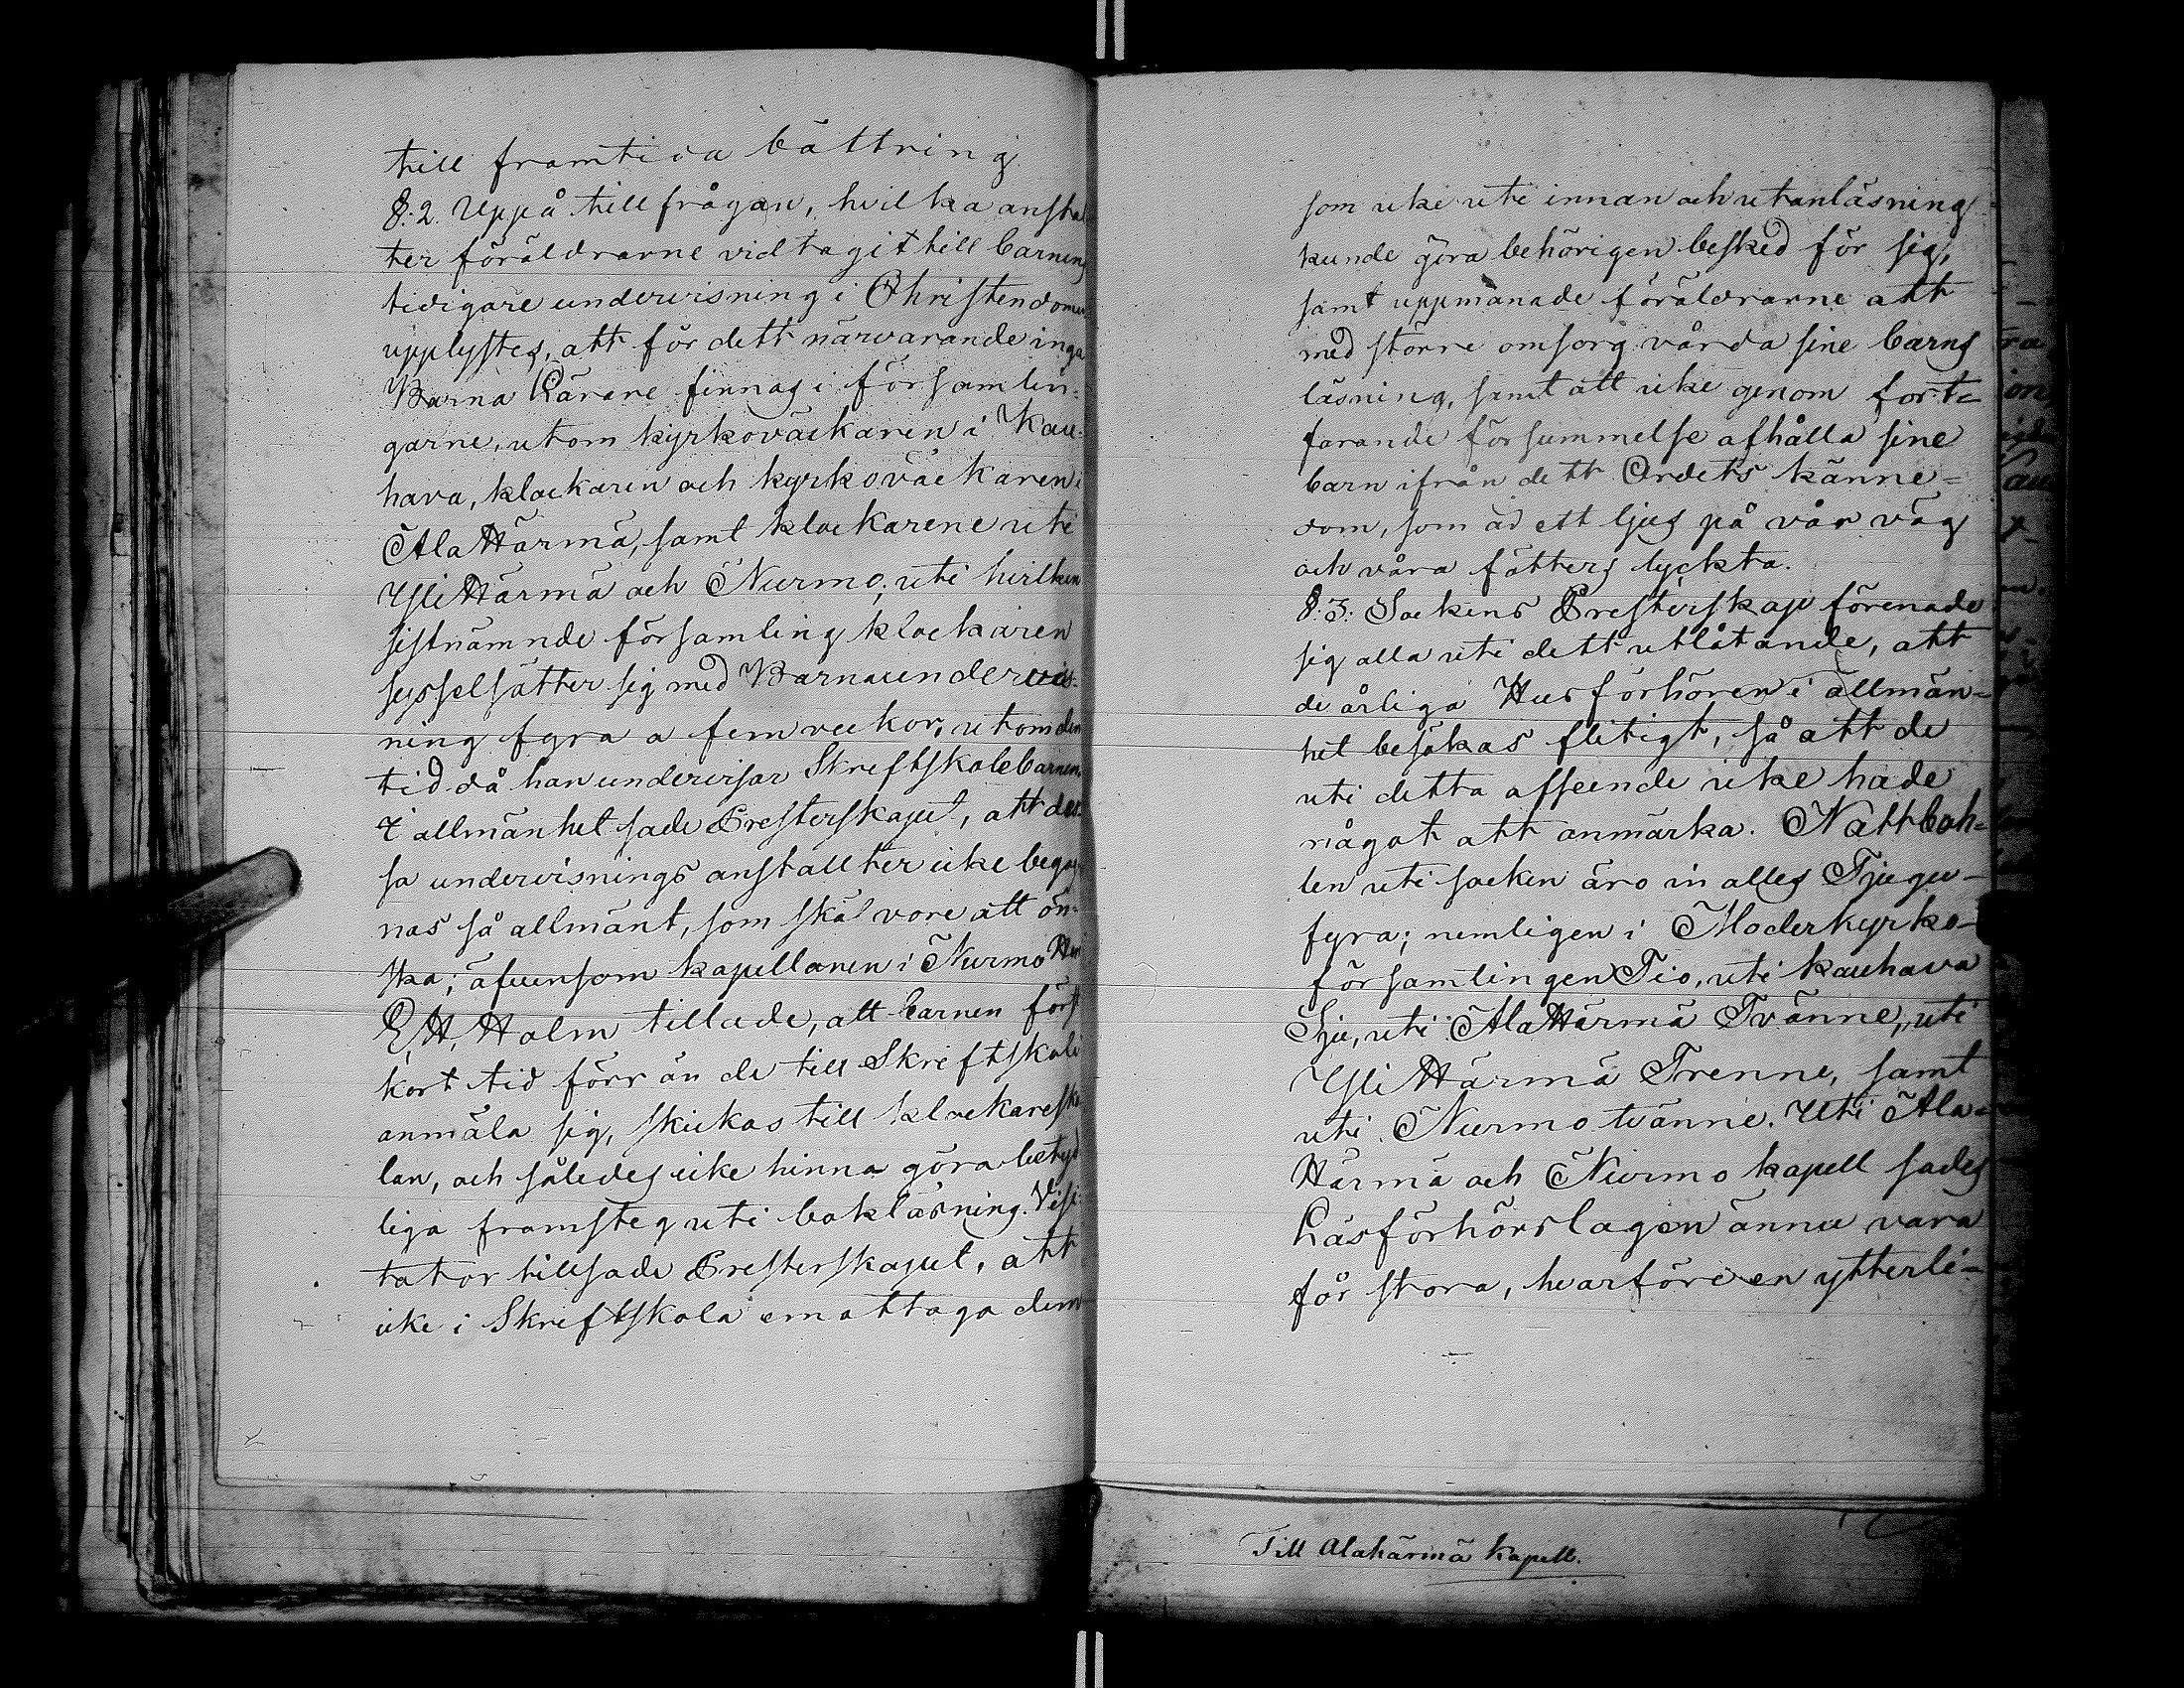 till framtida bättring
§. 2. Uppå tillfrågan, hvilka anstal
ter föräldrarne vidtagit till barnens
tidigare undervisning i Christendomen
upplystes, att för dett närvarande inga
Barna Lärare finnas i församlin=
garne, utom kyrkoväckaren i Kau=
hava, klockaren och kyrkoväckaren i
AlaHärmä, samt klockarene uti
YliHärmä och Nurmo; uti hvilken
sistnämnde församling klockaren
sysselsätter sig med Barnaundervis=
ning fyra a fem veckor, utom den
tid då han undervisar Skriftskolebarnen.
I allmänhet sade Presterskapet, att des=
sa undervisnings anstallter icke begag=
nas så allmänt, som skäl vore att ön=
ska; äfvensom kapellanen i Nurmo Herr
E. H. Holm tillade, att barnen först
kort tid förr än de till Skriftskole
anmäla sig, skickas till klockaresko
lan, och således icke hinna göra betyd
liga framsteg uti bokläsning. Visi=
tator tillsade Presterskapet, att
icke i Skriftskola emottaga dem
som icke uti innan och utanläsning
kunde göra behörigen besked för sig,
samt uppmanade föräldrarne att
med större omsorg vårda sine barns
läsning, samt att icke genom fort=
farande försummelse afhålla sine
barn ifrån dett Ordets känne=
dom, som äd ett ljus på vår väg
och våra fötters lyckta.
§. 3. Sockens Presterskap förenade
sig alla uti dett utlåtande, att
de årliga Husförhören i allmän=
het besökas flitigt, så att de
uti detta afseende icke hade
något att anmärka. Nattboh=
len uti socken äro in alles Tjugu=
fyra; nemligen i Moderkyrko=
församlingen Tio, uti kauhava
Sju, uti AlaHärmä Tvänne, uti
YliHärmä Trenne, samt
uti Nurmo tvänne. Uti Ala=
Härmä och Nurmo kapell sades
Läsförhörslagen ännu vara
för stora, hvarföre en ytterli=
Till Alahärmä Kapell.